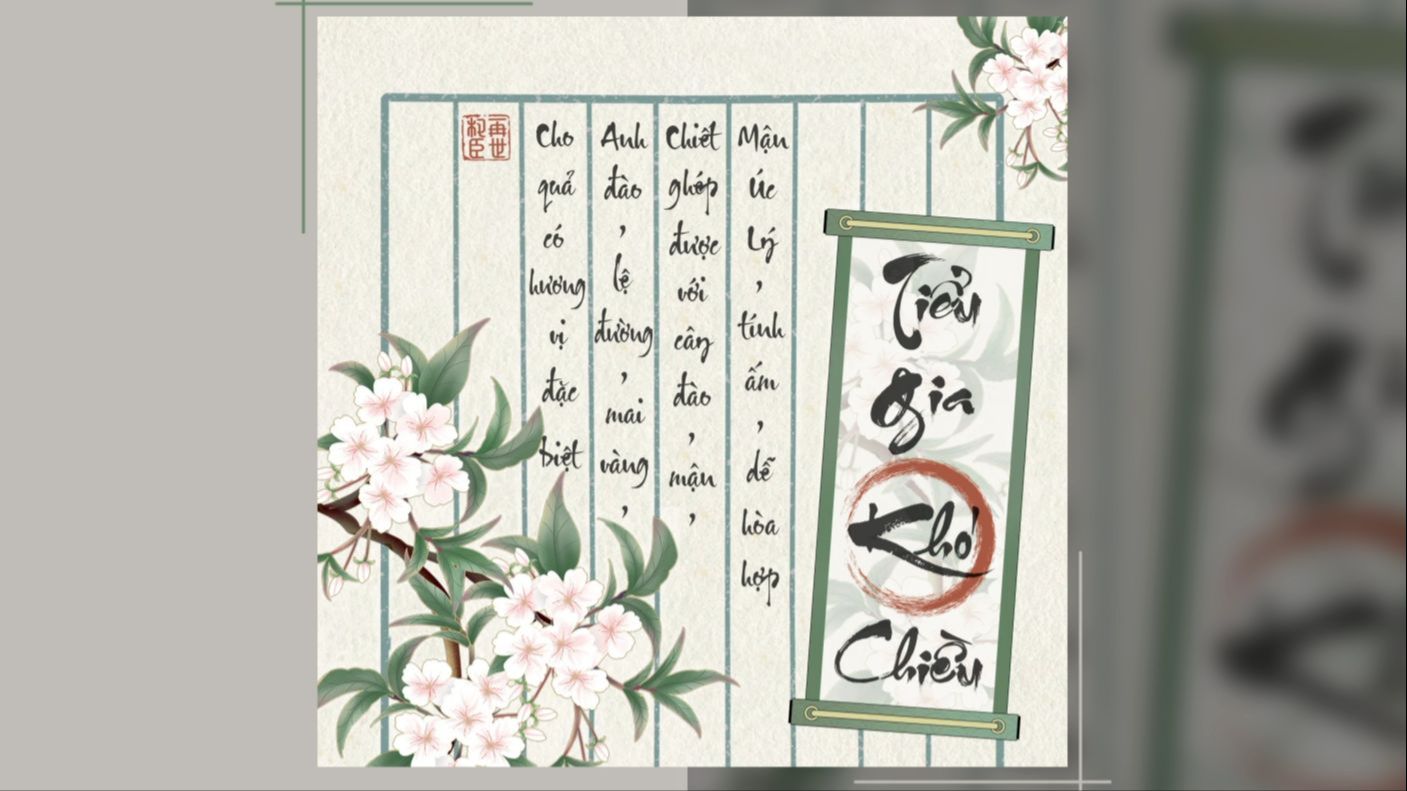 Tiểu gia Khó Chiều
Mận Úc Lý, tính ấm, dễ hòa hợp
Chiết ghép được với cây đào, mận,
Anh đào, lệ đường, mai vàng,
Cho quả có hương vị đặc biệt